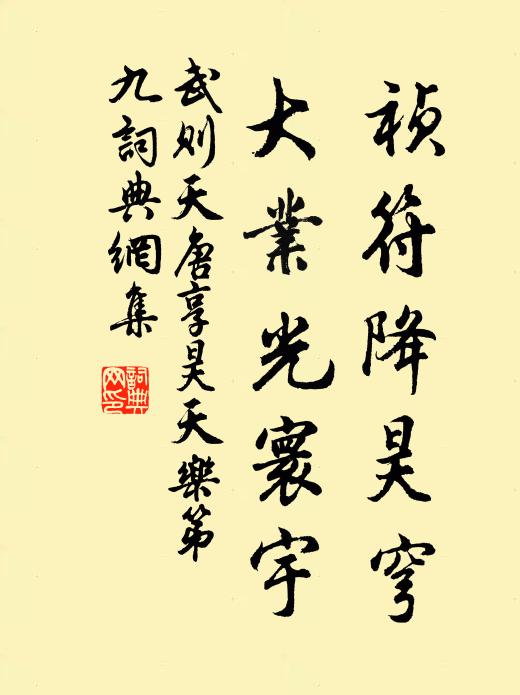 禎符降昊穹
大業光寰宇
武則天唐享昊天樂第
九詞典網集
詞典
网印